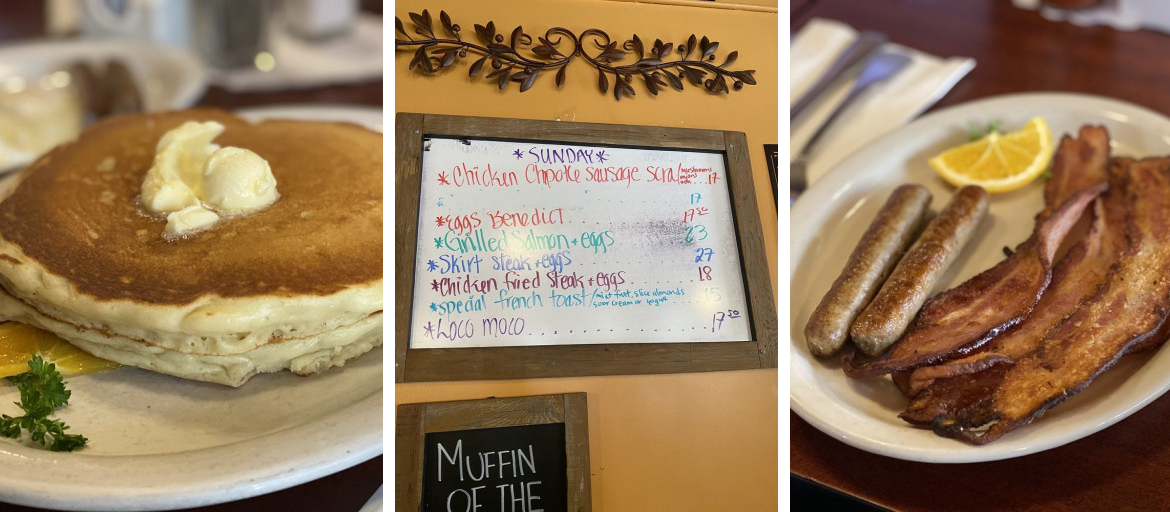 *SUNDAY*
*Chicken Chpotle Sausage Scra/mushrooms onions ...17
17
*Eggs BENEDICT... 17⁵⁰
*Grilled Salmon + eggs 23
*Skirt steak + eggs 27
*Chicken fried steak + eggs 18
*special french toast/mixt fruit, slice almonds
sour cream or yogur 15
*Loco moco........ 17⁵⁰
MUFFIN
OF THE